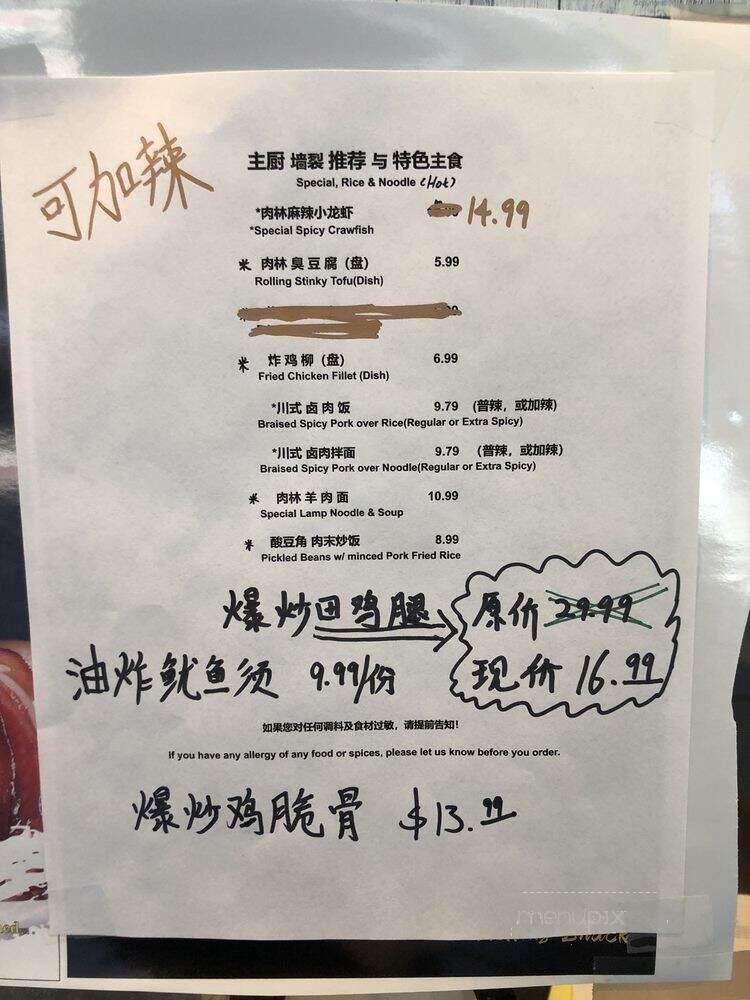 可加辣
主厨 墙裂 推荐 与 特色主食
Special, Rice & Noodle (Hot)
*肉林麻辣小龙虾 14.99
*Special Spicy Crawfish
米 肉林 臭豆腐（盘） 5.99
Rolling Stinky Tofu(Dish)
米 炸鸡柳（盘） 6.99
Fried Chicken Fillet (Dish)
*川式 卤肉饭 9.79 （普辣，或加辣)
Braised Spicy Pork over Rice(Regular or Extra Spicy)
*川式 卤肉拌面 9.79 （普辣，或加辣)
Braised Spicy Pork over Noodle(Regular or Extra Spicy)
米 肉林 羊肉面 10.99
Special Lamp Noodle & Soup
米 酸豆角 肉末炒饭 8.99
Pickled Beans w/ minced Pork Fried Rice
爆炒田鸡腿 原价 29.99
现价 16.99
油炸鱿鱼须 9.99/份
如果您对任何调料及食材过敏，请提前告知！
If you have any allergy of any food or spices, please let us know before you order.
爆炒鸡脆骨 $13.99
menupix